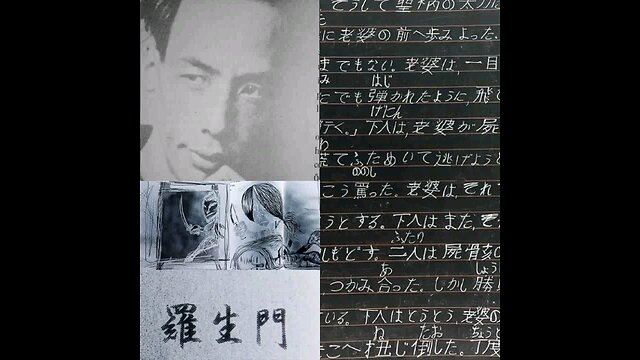 そうして聖柄の太刀
に老婆の前へ歩みよった。
までもない。老婆は、一目
はじ
でも弾かれたように、飛
げにん
行く。」下人は、老婆が屍
慌てふためいて逃げよう
ののし
こう罵った。老婆は、それ
うとする。下人はまた、そ
ふたり
しもどす。二人は屍骸
あ しょう
、つかみ合った。しかし勝
いる。下人はとうとう、老婆
ね たお ちょう
こへ扭じ倒した。丁度
羅生門